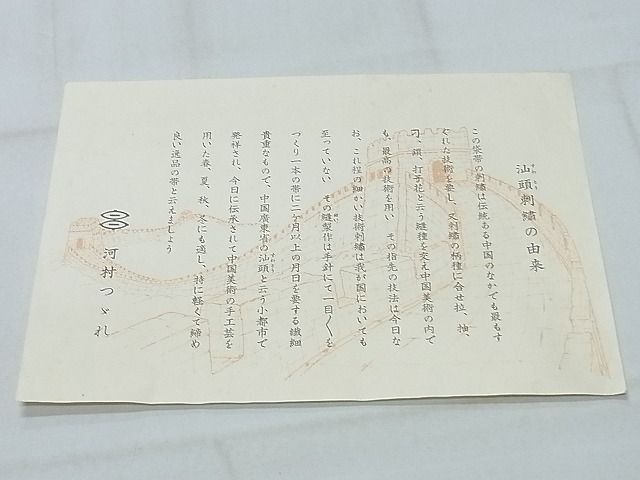 汕頭刺繡の由来
この袋帯の刺繡は伝統ある中国のなかでも最もす
ぐれた技術を要し、又刺繡の柄種に合せ拉、抽、
刁、鎖、打子花と云う縫種を交え中国美術の内で
も、最高の技術を用い その指先の技法は今日な
お、これ程の細かい技術刺繡は我が国においても
至っていない その縫製作は手針にて一目〳〵を
つくり一本の帯に二ヶ月以上の月日を要する繊細
貴重なもので、中国廣東省の汕頭と云う小都市で
発祥され、今日に伝承されて中国美術の手工芸を
用いた春、夏、秋、冬にも適し、特に軽くて締め
良い逸品の帯と云えましょう
河村つゞれ